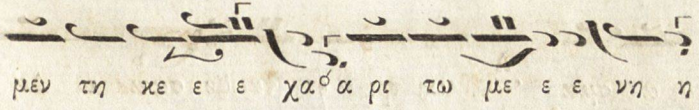 μέν τη κε ε ε ε χα ά ρι τω με ε ε νη η